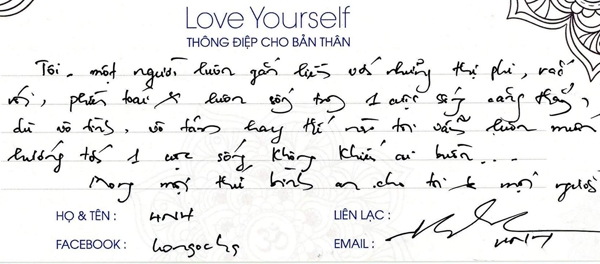 Love Yourself
THÔNG ĐIỆP CHO BẢN THÂN
Tôi, một người luôn gắn liền với những thị phi, rắc
rối, phiền toái & luôn sống trog 1 cuộc sống căng thẳg,
dù vô tình, vô tâm hay thế nào tôi vẫn luôn muốn
hướng tới 1 cuộc sống không khiến ai buồn...
Mong mọi thứ bình an cho tôi & mọi người
HỌ & TÊN : LIÊN LẠC :
FACEBOOK : EMAIL :